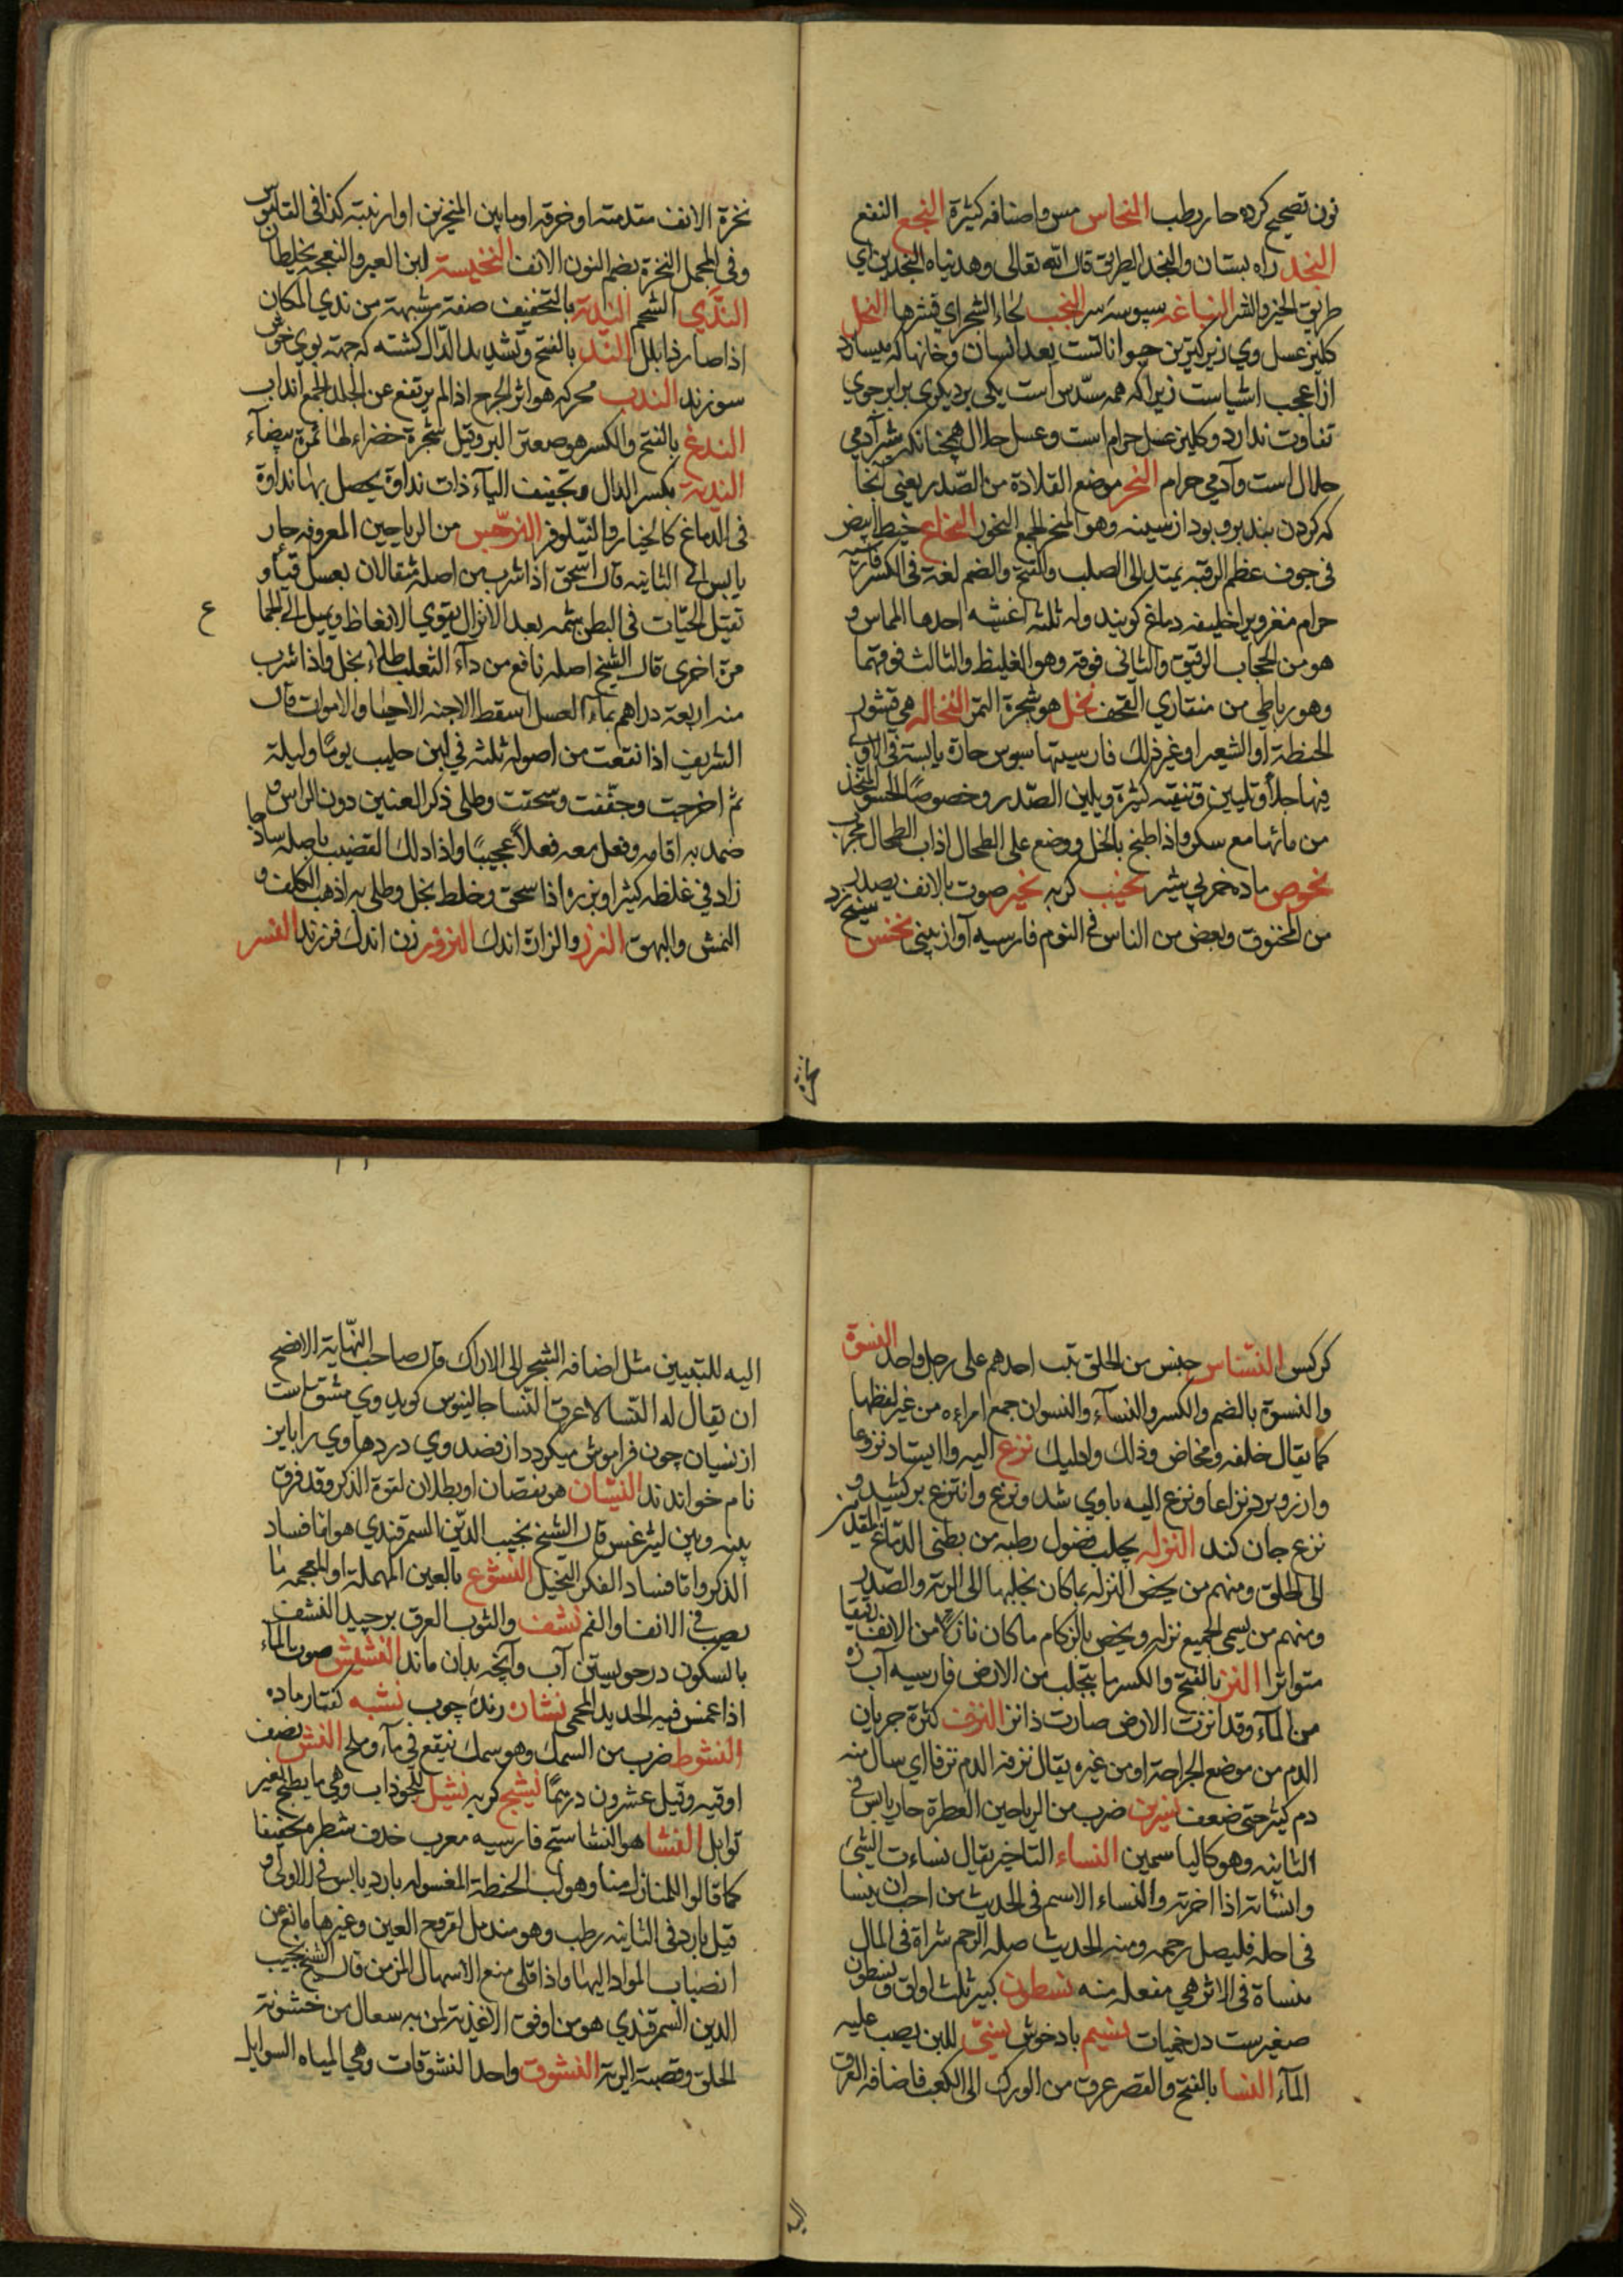 نون تصحیح کرده حار رطب النحاس مس واصنافه کثیرة النجع النفع
النجد راه بستان والنجد الطریق قال الله تعالی وهدیناه النجدین ای
طریق الخیر والشر النباغه سپوسه سر النجب لحاء الشجر ای قشرها النحل
کلیز عسل وی زیرکترین حیوانا تست بعد انسان وخانها که میسازد
از اعجب اشیاست زیرا که همه مسدس است یکی بر دیکری برابر جوی
تفاوت ندارد وکلیز عسل حرام است وعسل حلال همچنانکه شیر آدمی
حلال است وآدمی حرام النحر موضع القلادة من الصدر یعنی آنجا
که کردن بند برو بود از سینه وهو المنحر الجمع النحور النخاع خیط ابیض
فی جوف عظم الرقبه یمتد الی الصلب والفتح والضم لغة فی الکسر فارسیه
حرام مغز ویرا خلیفه دماغ کویند وله ثلثه اغشیه احدها المماس و
هو من الحجاب الرقیق والثانی فوقه وهو الغلیظ والثالث فوقهما
وهو رباطی من منقاری القحف نخل هو شجرة التمر النخاله هی قشور
الحنطة او الشعیر او غیر ذلک فارسیتها سبوس حارة یابسة فی الاولی
فیها جلاء وتلیین وتنقیه کثیرة ویلین الصدر وخصوصًا الحسو المتخذ
من مائها مع سکر واذا طبخ بالخل ووضع علی الطحال اذاب الطحال مجرب
نخوص ماده خر بی شیر نحیب کریه نخیر صوت بالانف یصدر
من المخنوق وبعض من الناس فی النوم فارسیه آواز بینی نخس سیخ زد
نخرة
نخرة الانف مقدمته او خرقه او ما بین المنخرین او ارنبته کذا فی القاموس
وفی المجمل النخرة بضم النون الانف النخیسة لبن العیر والنعجه یخلطان
الندی الشحم الندیة بالتخفیف صفة مشبهة من ندی المکان
اذا صار ذا بلل الند بالفتح وتشدید الدال کشته که جهة بوی خوش
سوزند الندب محرکه هو اثر الجرح اذا لم یرتفع عن الجلد الجمع انداب
الندغ بالفتح والکسر هو صعتر البر وقیل شجرة خضراء لها ثمرة بیضاء
الندیة بکسر الدال وتخفیف الیاء ذات نداوة یحصل بها نداوة
فی الدماغ کالخیار والنیلوفر النرجس من الریاحین المعروفه حار
یابس الی الثانیه قال اسحق اذا شرب من اصله مثقالان بعسل قیأ و
تقتل الحیات فی البطن شمه بعد الانزال یقوی الانعاظ ویمیل الی الجماع
مرة اخری قال الشیخ اصله نافع من داء الثعلب طلاء بخل واذا شرب
منه اربعة دراهم بماء العسل اسقط الاجنه الاحیاء والاموات قال
الشریف اذا نقعت من اصوله ثلثه فی لبن حلیب یومًا ولیلة
ثم اخرجت وجففت وسحقت وطلی ذکر العنین دون الراس و
ضمد به اقامه وفعل معه فعلاً عجیبًا واذا دلک القضیب باصله ساذجا
زاد فی غلظه کثیرا وبزره اذا سحق وخلط بخل وطلی به اذهب الکلف و
النمش والبهق النزر والنزارة اندک النزور زن اندک فرزند النسر
کرکس النسناس جنس من الخلق یثب احدهم علی رجل واحد النسوة
والنسوة بالضم والکسر والنساء والنسوان جمع امراءه من غیر لفظها
کما یقال خلفه ومخاض وذلک واولیک نزع الیه وا ایستاد نزوعا
وارزو برد نزاعا ونزع الیه باوی شد ونزع وانتزع برکشید و
نزع جان کند النزله یحلب فضول رطبه من بطنی الدماغ المقدمین
الی الحلق ومنهم من یخص النزله بما کان یحلبها الی الریه والصدر
ومنهم من یسمی الجمیع نزله ویخص بالزکام ما کان نازلا من الانف رقیقا
متواترا النز بالفتح والکسر ما یتحلب من الارض فارسیه آب زه
من الماء وقد انزت الارض صارت ذا نز النزف کثرة جریان
الدم من موضع الجراحة او من غیره یقال نزفه الدم نزفا ای سال منه
دم کثیر حتی ضعف نسرین ضرب من الریاحین العطرة حار یابس فی
الثانیه وهو کالیاسمین النساء التاخیر یقال نساءت الشیء
وانسأته اذا اخرته والنساء الاسم فی الحدیث من احب ان ینسا
فی اجله فلیصل رحمه ومنه الحدیث صله الرحم مثراة فی المال
منساة فی الاثر هی مفعله منه نسطون کبیر ثلث اواق ونسطون
صغیرست درخمیات نسیم باد خوش نسئ اللبن یصب علیه
الماء النسا بالفتح والقصر عرق من الورک الی الکعب فاضافه العرق
الیه
الیه للتبیین مثل اضافه الشجر الی الاراک قال صاحب النهایة الافصح
ان یقال له النسا لا عرق النسا جالینوس کوید وی مشتق است
از نسیان چون فراموش میکردد از قصد وی دردها وی را باین
نام خواندند النسیان هو نقصان او بطلان لقوة الذکر وقد فرق
بینه وبین لیثرغس قال الشیخ نجیب الدین السمرقندی هو اما فساد
الذکر واما فساد الفکر التخیل النشوع بالعین المهمله او المعجمه ما
یصب فی الانف او الفم نشف والثوب العرق برچید النشف
بالسکون درجویستن آب وآنچه بدان ماند النشیش صوت الماء
اذا غمس فیه الحدید المحمی نشاره رنده چوب نشبه کفتار ماده
النشوط ضرب من السمک وهو سمک ینقع فی ماء وملح النش نصف
اوقیه وقیل عشرون درهمًا نشیج کریه نشیل للجوذاب وهی ما یطبخ بغیر
توابل النشا هو النشاستج فارسیه معرب حذف شطره تخفیفا
کما قالوا للمنازل منا وهو لب الحنطة المغسوله بارد یابس فی الاولی و
قیل بارد فی الثانیه رطب وهو مندمل لقروح العین وغیرها مانع من
انصباب المواد الیها واذا قلی منع الاسهال المزمن قال الشیخ نجیب
الدین السمرقندی هو من اوفق الاغذیة لمن به سعال من خشونة
الحلق وقصبة الریة النشوق واحد النشوقات وهی المیاه السوایل